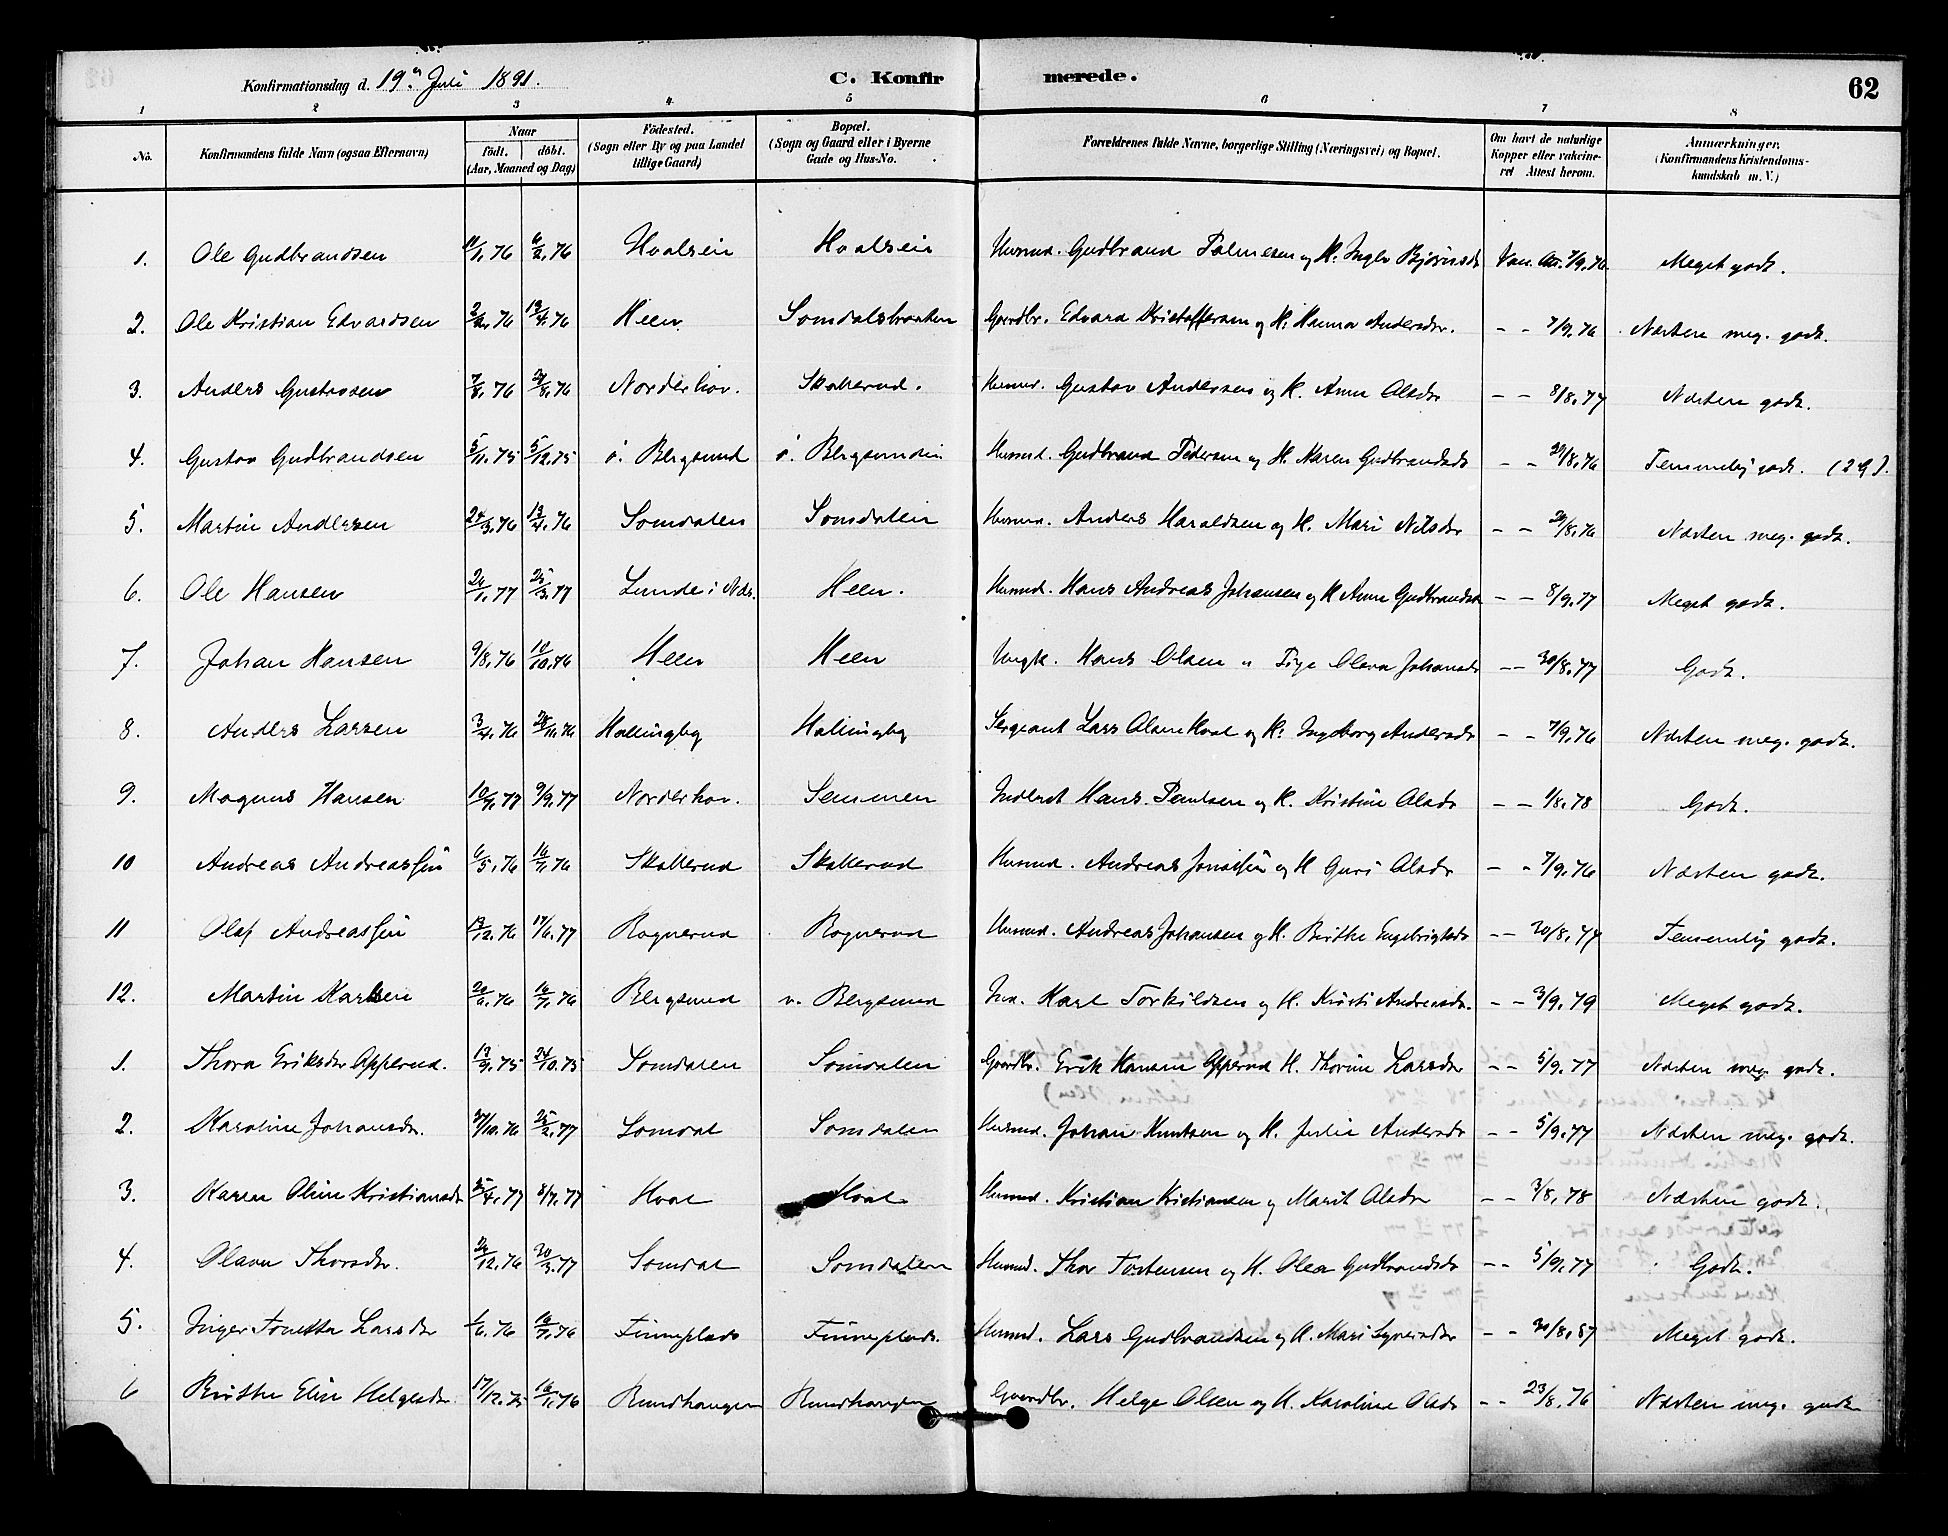 Konfirmationsdag d. 19de Juli 1891. C. Konfirmerede. 62
1 2 3 4. 5 6 7 8
No. Konfirmandens fulde Navn (ogsaa Efternavn) Naar födt. döbt. (Aar, Maaned og Dag) Födested. (Sogn eller By og paa Landet tillige Gaard) Bopæl. (Sogn og Gaard eller i Byerne Gade og Hus-No. Forældrenes fulde Navne, borgerlige Stilling (Næringsvei) og Bopæl. Om havt de naturlige Kopper eller vakcineret Attest herom. Anmærkninger. (Konfirmandens Kristendomskundskab m. V.)
1. Ole Gudbrandsen 11/1.76 6/2.76 Hvalseie Hvalseie Husmd. Gudbrand Palmesen og H. Inger Bjørnsdr Vac. Att. 7/9.76. Meget godt.
2. Ole Kristian Edvardsen 2/2.76 17/4.76 Heen Somdalsbraaten Gaardbr. Edvard Kristoffersen og H. Hanna Andersdr. - - 7/9.76 Næsten meg. godt.
3. Anders Gustavsen 7/8.76 27/8.76 Norderhov. Skollerud. Husmd. Gustav Andersen og H. Anne Olsdr - - 8/8.77 Næsten godt.
4. Gustav Gudbrandsen 5/11.75 5/12.75 ö. Bergsund ö. Bergsundeie Husmd. Gudbrand Pedersen og H. Karen Gudbrandsdr - - 29/8.76 Temmelig godt. (2 g).
5. Martin Andersen 24/3.76 17/4.76 Somdalen Somdalen Husmd. Anders Haraldsen og H. Mari Nilsdr - - 29/8.76 Næsten meg. godt.
6. Ole Hansen 24/1.77 25/3.77 Lunde i Ndr. Heen. Husmd. Hans Andreas Johansen og H Anne Gudbrandsdr - - 8/9.77 Meget godt.
7. Johan Hansen 9/8.76 10/10.76 Heen Heen Ungk. Hans Olsen " Pige Olava Johansdr - - 30/8.77 Godt.
8. Anders Larsen 3/4.76 26/11.76 Hallingby Hallingby Sergeant Lars Olsen Hval og H. Ingeborg Andersdr - - 7/9.76 Næsten meg. godt.
9. Magnus Hansen 10/4.77 9/9.77 Norderhov. Semmen Inderst Hans Paulsen og H. Kristine Olsdr - - 1/8.78 Godt.
10 Andreas Andreassen 6/5.76 16/7.76 Skollerud Skollerud Husmd. Andreas Jonassen og H Guri Olsdr - - 7/9.76 Næsten godt.
11 Olaf Andreassen 13/12.76 17/6.77 Rognerud Rognerud Husmd. Andreas Johansen og H. Birthe Engebrigtsdr - - 30/8.77 Temmelig godt.
12. Martin Karlsen 20/6.76 16/7.76 Bergsund v. Bergsund Ind. Karl Torkildsen og H. Kristi Andreasdr. - - 3/9.79 Meget godt.
1. Thora Eriksdr Opperud. 13/9.75 24/10.75 Somdalen Somdalen Gaardbr. Erik Hansen Opperud H. Thorine Larsdr - - 5/9.77 Næsten meg. godt.
2. Karoline Johansdr. 27/10.76 25/2.77 Somdal Somdalen Husmd. Johan Knutsen og H. Julie Andersdr - - 5/9.77 Næsten meg. godt.
3. Karen Oline Kristiansdr 25/4.77 8/7.77 Hval Hval Husmd. Kristian Kristiansen og Marit Olsdr - - 3/8.78 Næsten godt.
4. Olava Thorsdr. 24/12.76 20/3.77 Somdal Somdalen Husmd. Thor Tostensen og H. Olea Gudbrandsdr - - 5/9.77 Godt.
5. Inger Tonetta Larsdr 1/6.76 16/7.76 Finneplads Finneplads. Husmd. Lars Gudbrandsen og H. Mari Syversdr - - 30/8.87 Meget godt.
6 Birthe Elise Helgesdr. 17/12.75 16/1.76 Rundhaugen Rundhaugen Gaardbr. Helge Olsen og H. Karoline Olsdr - - 23/8.76 Næsten meg. godt